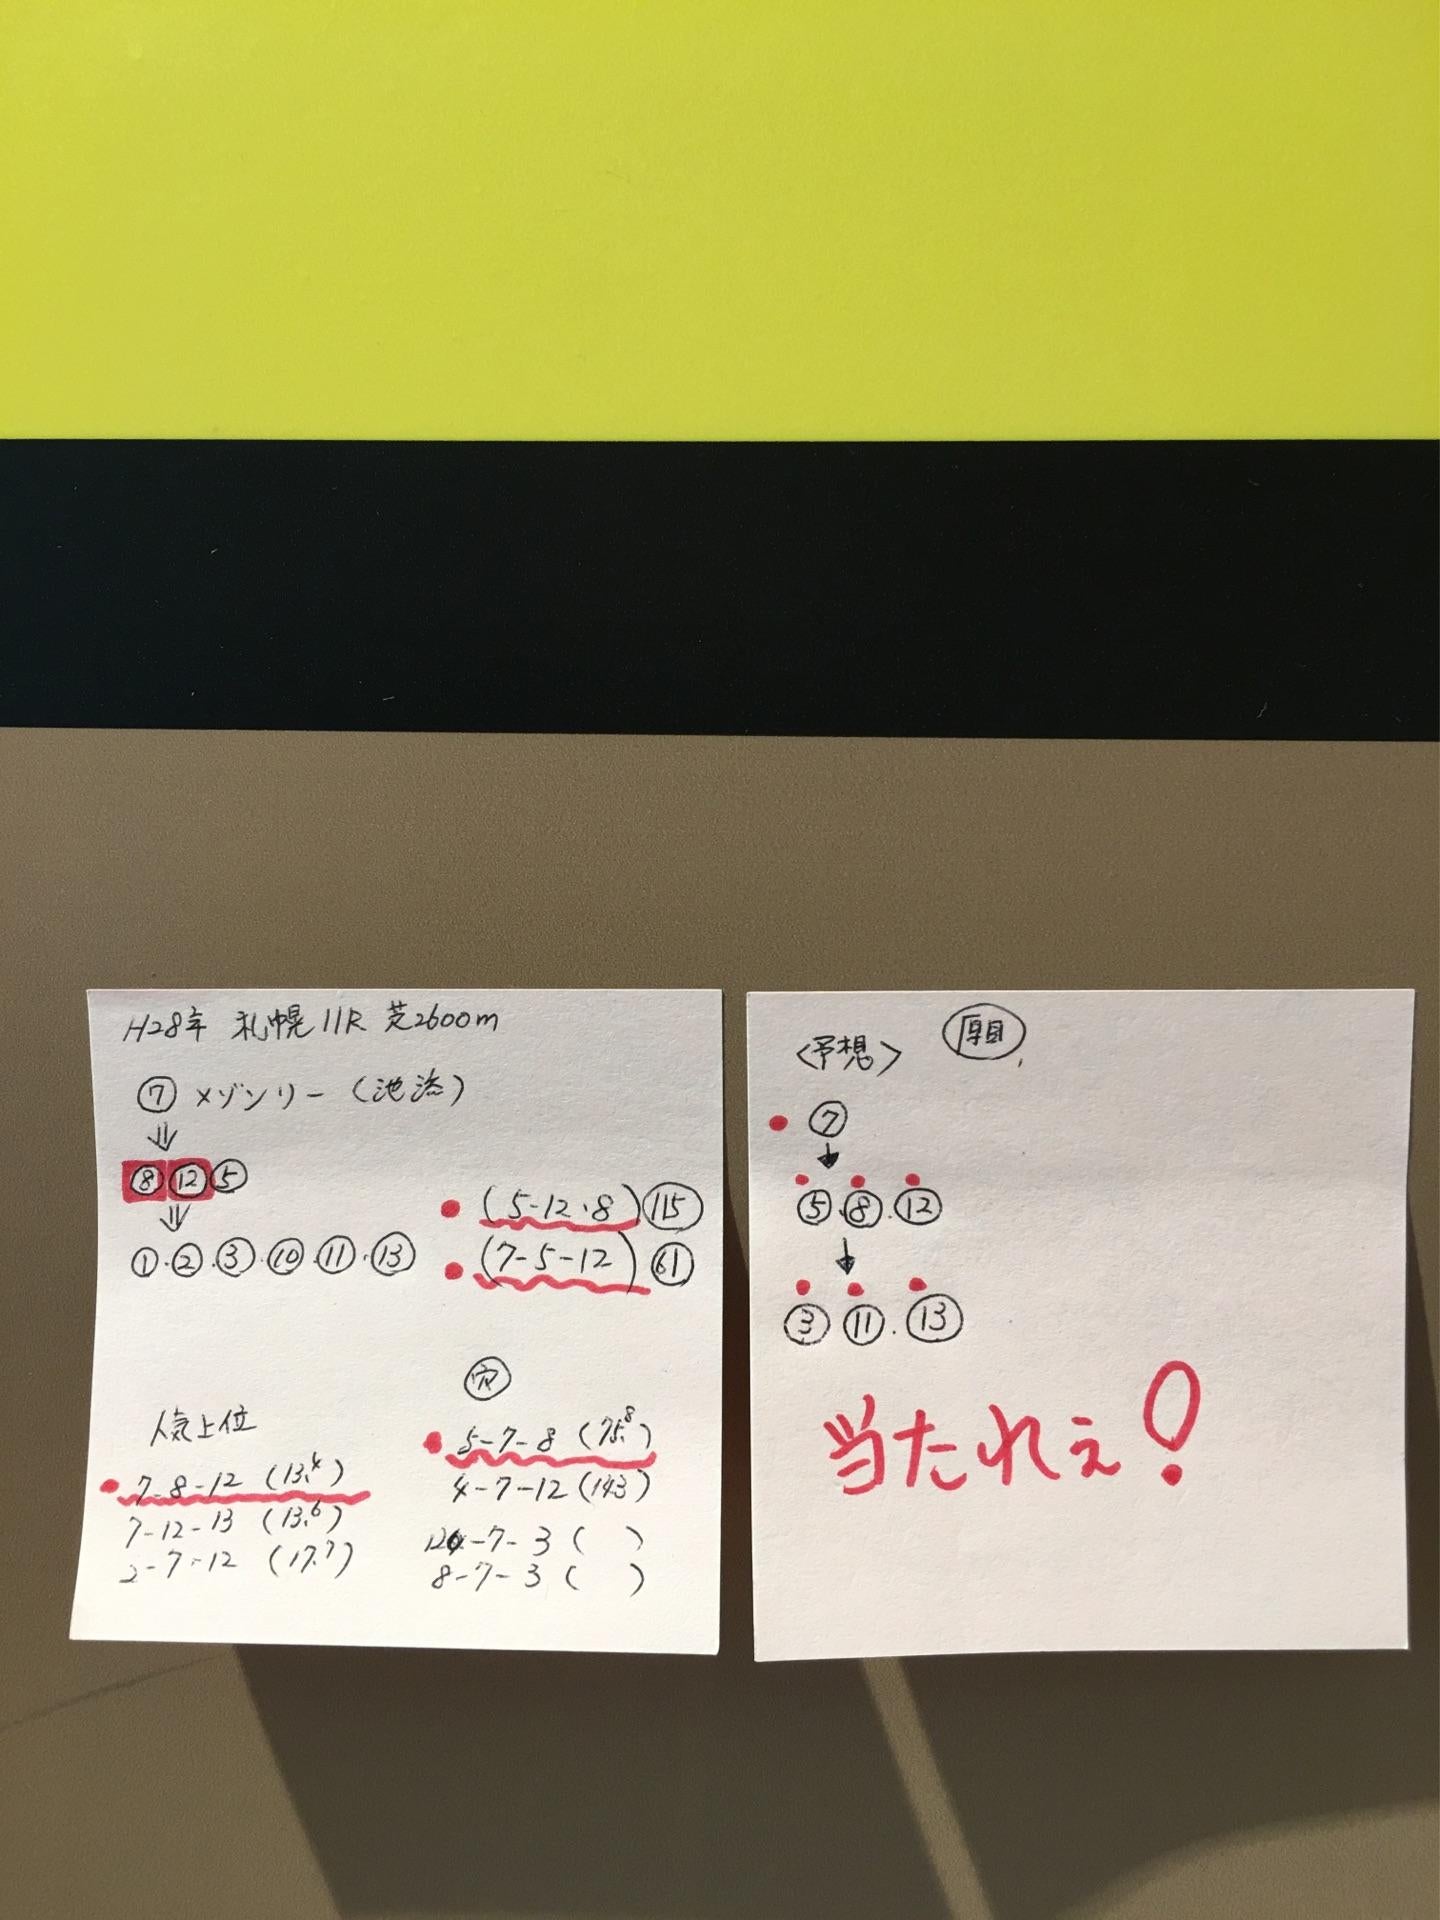 H28年 札幌 11R 芝2600m
⑦ メゾンリー (池添)
⇓
⑧⑫⑤
⇓
①・②・③・⑩・⑪・⑬
(5-12・8) 115
(7-5-12) 61
人気上位
7-8-12 (13.4)
7-12-13 (13.6)
2-7-12 (17.7)
穴
5-7-8 (75.8)
4-7-12 (143)
12-7-3 ( )
8-7-3 ( )
<予想>
⑦
↓
⑤.⑧.⑫
↓
③ ⑪.⑬
当たれぇ!